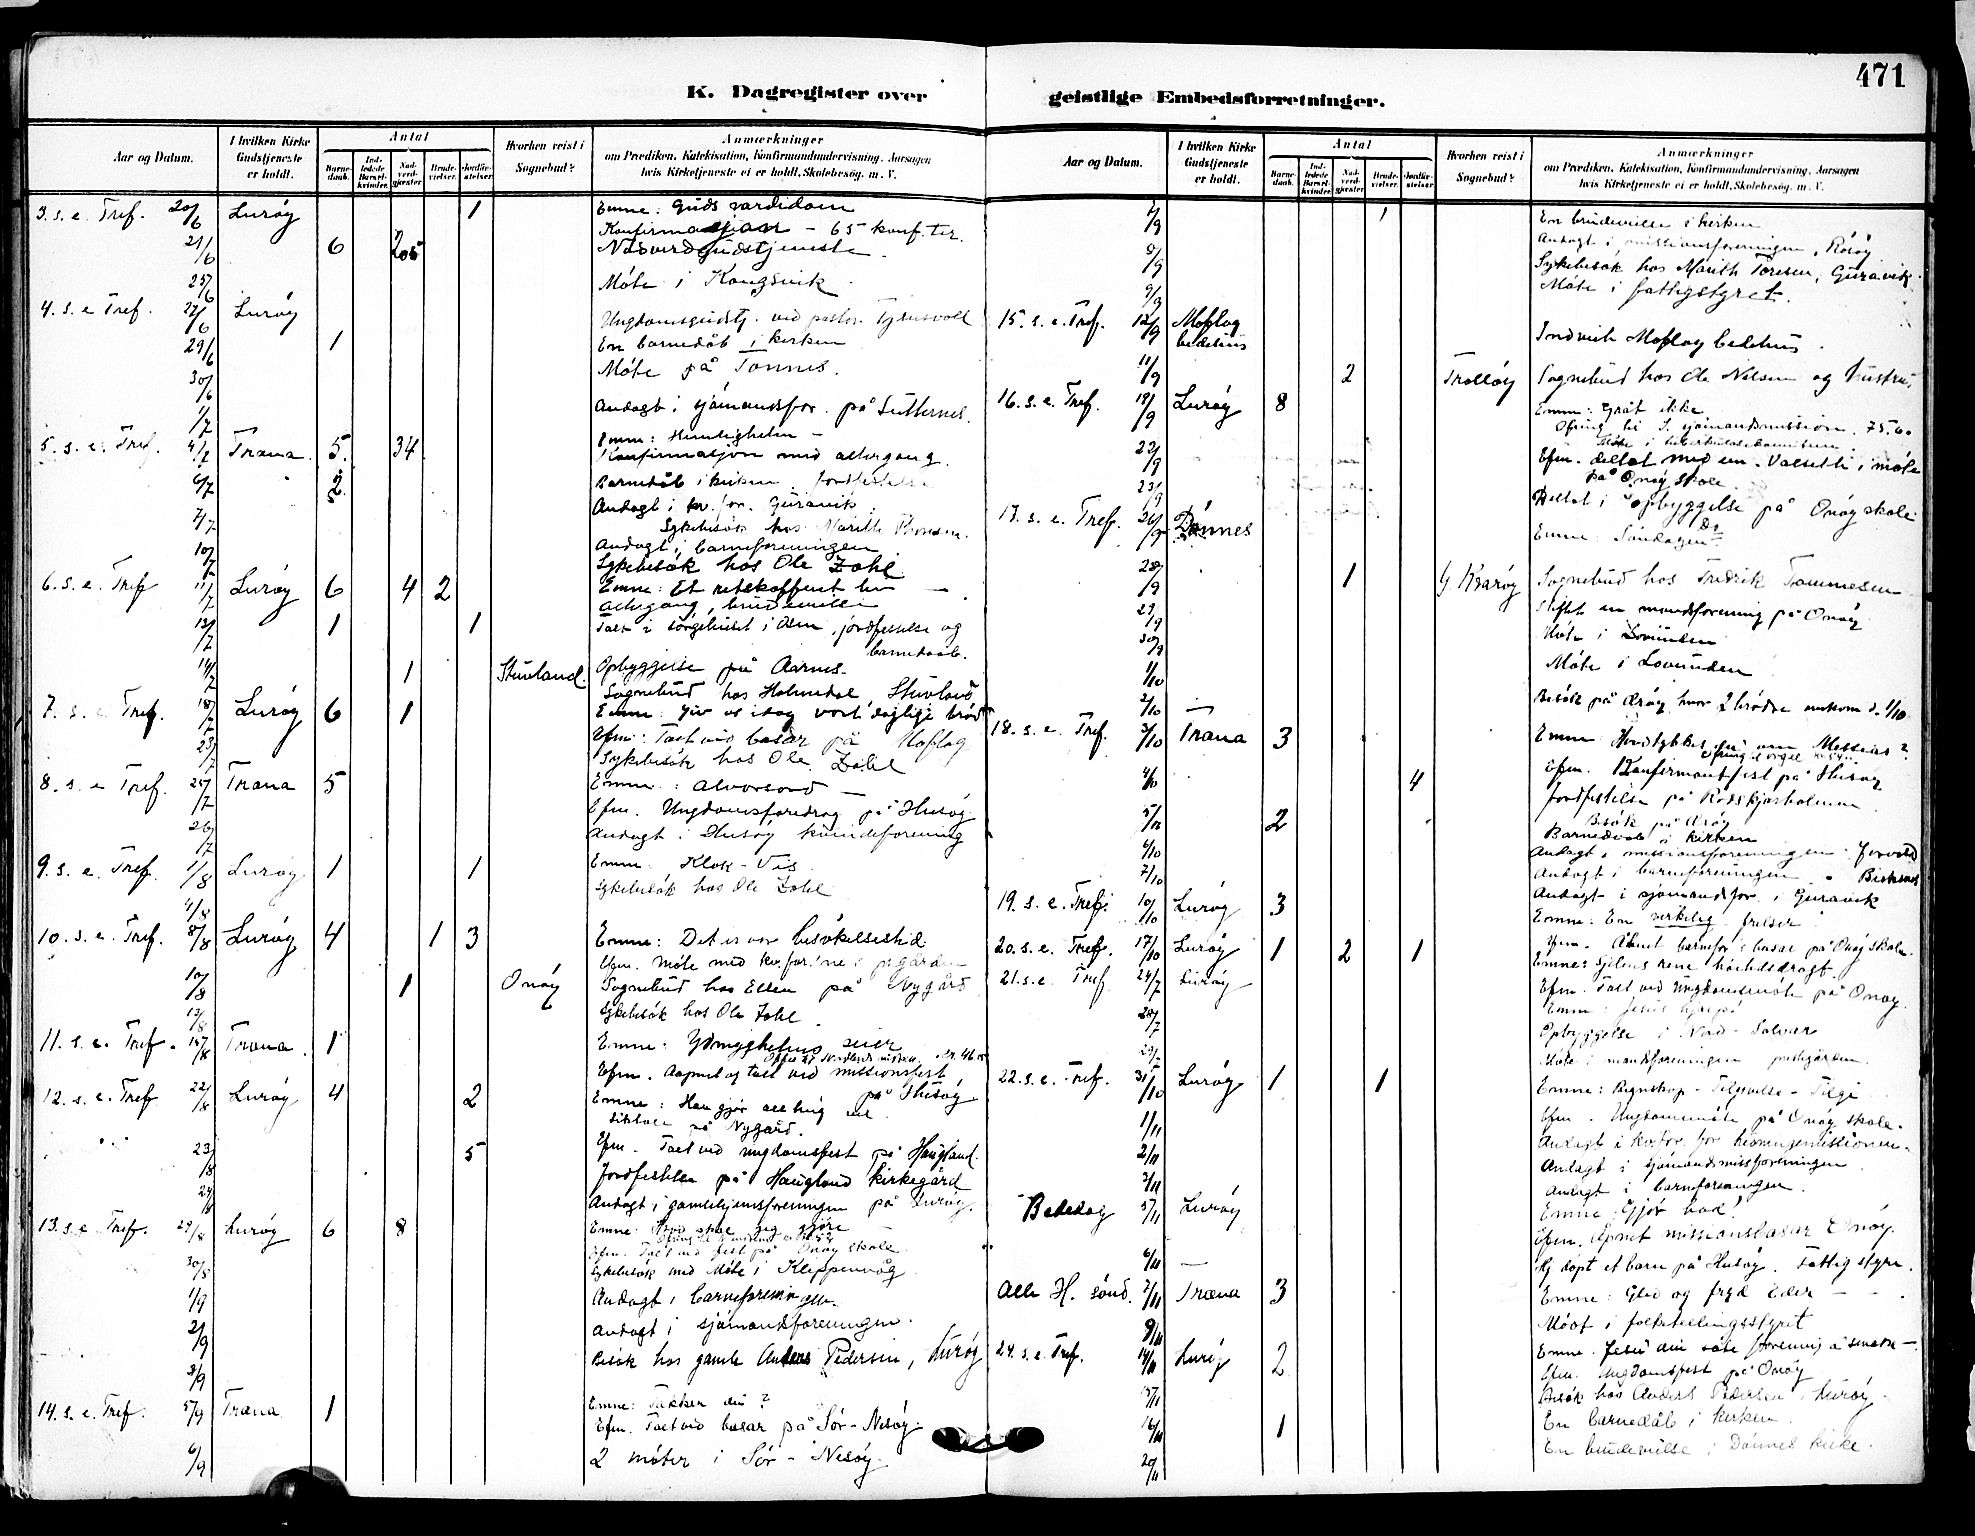 471
K. Dagregister over geistlige Embedsforretninger.
Aar og Datum. I hvilken Kirke Gudstjeneste er holdt. Antal Barnedaab. Indledede Barselkvinder. Nadverdgjester Brudevielser. Jordfæstelser Hvorhen reist i Sognebud? Anmærkninger om Prædiken, Katekisation, Konfirmandundervisning. Aarsagen hvis Kirketjeneste ei er holdt. Skolebesøg. m. V.
3. s. e. Tref. 20/6 Lurøy 1 Emne: Guds værdidom
21/6 6 205 Konfirmasjon - 65 konf.ter.
Nadverdgudstjeneste
25/6 Møte i Kongsvik
4. s. e. Tref. 27/6 Lurøy Ungdomsgudstj. ved pastor
29/6 1 En barnedåb i kirken
30/6 Møte på Tonnes.
1/7 Andagt i sjømandsfor. på
5. s. e. Tref. 4/7 Træna 5. 34 Emne: Hemligheten -
Konfirmasjon med altergang.
6/7 2 Barnedåb i kirken. Jordfestelse
7/7 Andagt i kv.for. Guravik.
Sykebesøk hos Marith
Andagt i barneforeningen
10/7 Sykebesøk hos Ole Zahl
6. s. e. Tref 11/7 Lurøy 6 4 2 Emne: Et
altergang, brudevielse
12/7 1 1 Tale i sørgehuset i Åsen, jordfestelse og
barnedaab.
14/7 1 Stuvland. Opbyggelse på Aarnes
Sognebud hos Holmdal, Stuvland
7. s. e. Tref. 18/7 Lurøy 6 1 Emne: Giv os idag vort daglige brød
Efm: Talt ved basar på Moflag
23/7 Sykebesøk hos Ole Zahl
8. s. e. Tref. 25/7 Træna 5 Emne: Alvorsord -
Efm. Ungdomsforedrag på Husøy
26/7 Andagt i Husøy kvindeforening
9. s. e. Tref. 1/8 Lurøy 1 1 Emne: Klok - Vis
4/8 Sykebesøk hos Ole Zahl
10. s. e. Tref. 8/8 Lurøy 4 1 3 Emne: Det er vor besøkelsestid
Efm. Møte med kv.for.ne i p.gården
10/8 1 Onøy Sognebud hos Ellen på Nygård
13/8 Sykebesøk hos Ole Zahl.
11. s. e. Tref. 15/8 Træna. 1 Emne: Ydmyghetens seier
Efm. Aapnet og talt ved missionsfest
på Husøy
12. s. e. Tref. 22/8 Lurøy 4 2 Emne: Han gjør alle ting vel
på Nygård.
5 Efm. Talt ved ungdomsfest på Haugland.
23/8 Jordfestelse på Haugland kirkegård
24/8 Andagt i gamlehjemsforeningen på Lurøy.
13. s. e. Tref. 29/8 Lurøy 6 8 Emne: Hvad skal jeg gjøre
Efm. Talt ved fest på Onøy skole.
30/8 Sykebesøk med Møte i Kleppenvåg
1/9 Andagt i barneforeningen.
2/9 Andagt i sjømandsforeningen.
3/9 Besøk hos gamle Anders Pedersen, Lurøy
14. s. e. Tref. 5/9 Træna 1 Emne: Takker du?
Efm. Talt ved basar på Sør-Nesøy.
6/9 2 møter i Sør-Nesøy.
Aar og Datum. I hvilken Kirke Gudstjeneste er holdt. Antal Barnedaab. Indledede Barselkvinder. Nadverdgjester Brudevielser. Jordfæstelser Hvorhen reist i Sognebud? Anmærkninger om Prædiken, Katekisation, Konfirmandundervisning. Aarsagen hvis Kirketjeneste ei er holdt. Skolebesøg. m. V.
/9 1 En brudevielse i kirken
Andagt i missionsforeningen,
8/9 Sykebesøk hos Marith Toresen, Guravik.
9/9 Møte i fattigstyret.
15. s. e. Tref. 12/9 Moflag bedehus Indviet Moflag bedehus.
/9 2 Trolløy Sognebud hos Ole Nelsen og hustru.
16. s. e. Tref. 19/9 Lurøy 8 Emne: Gråt ikke
Ofring til S. sjømandsmission. 75.60
22/9 Efm. deltat med en Valsetli i møte
på Onøy skole.
23/9 Deltat i opbyggelse på Onøy skole
17. s. e. Tref. 26/9 Dønnes Emne: Søndagen
28/9 1 Kvarøy Sognebud hos Fredrik Tommesen
29/9 Stiftet en mandsforening på Onøy
30/9 Møte i Lovunden
1/10 Møte i Lovunden
2/10 Besøk på hvor 2 brødre omkom d. 1/10
18. s. e. Tref. 3/10 Træna 3 Emne: Hvad tykkes om Messias?
Efm. Konfirmantfest på Husøy
4/10 4 Jordfestelse på Rødskjærholmen
5/10 2 Barnedåb i kirken
6/10 Andagt i missionsforeningen
7/10 Andagt i barneforeningen
Andagt i sjømandsfor. i Guravik
19. s. e. Tref. 10/10 Lurøy 3 Emne: En virkelig frelser
20. s. e. Tref. 17/10 Lurøy 1 2 1 Efm. Åpnet barnefor.s basar på Onøy skole.
Emne: Sjelens rene
21. s. e. Tref 24/7 Lurøy Efm. Talt ved Ungdomsmøte på Onøy.
Emne: Jesus
28/7 Opbyggelse i Nord-Solvær
29/ Møte i mandsforeningen prestegården.
22. s. e. Tref. 31/10 Lurøy 1 1 Emne: Regnskap - Tilgivelse - Tilgi
Efm. Ungdomsmøte på Onøy skole.
1/11 Andagt i kv.for. for hedningemissionen.
2/11 Andagt i sjømandsmissforeningen
3/11 Andagt i barneforeningen.
Bededag 5/11 Lurøy Emne: Gjør bod!
Efm. Åpnet missionsbasar Onøy.
6/11 Hj døpt et barn på Husøy. Fattigstyre.
Alle H. sønd. 7/11 Træna 3 Emne: Gled og fryd Eder
9/11 Møot i folketellingsstyret
24. s. e. Tref. 14/11 Lurøy 2 Emne: Jesu
Efm. Ungdomsfest på Onøy
15/11 Besøk hos Anders Pedersen, Lurøy.
16/11 1 En barnedåb i kirken.
20/11 En brudevielse i Dønnes kirke.